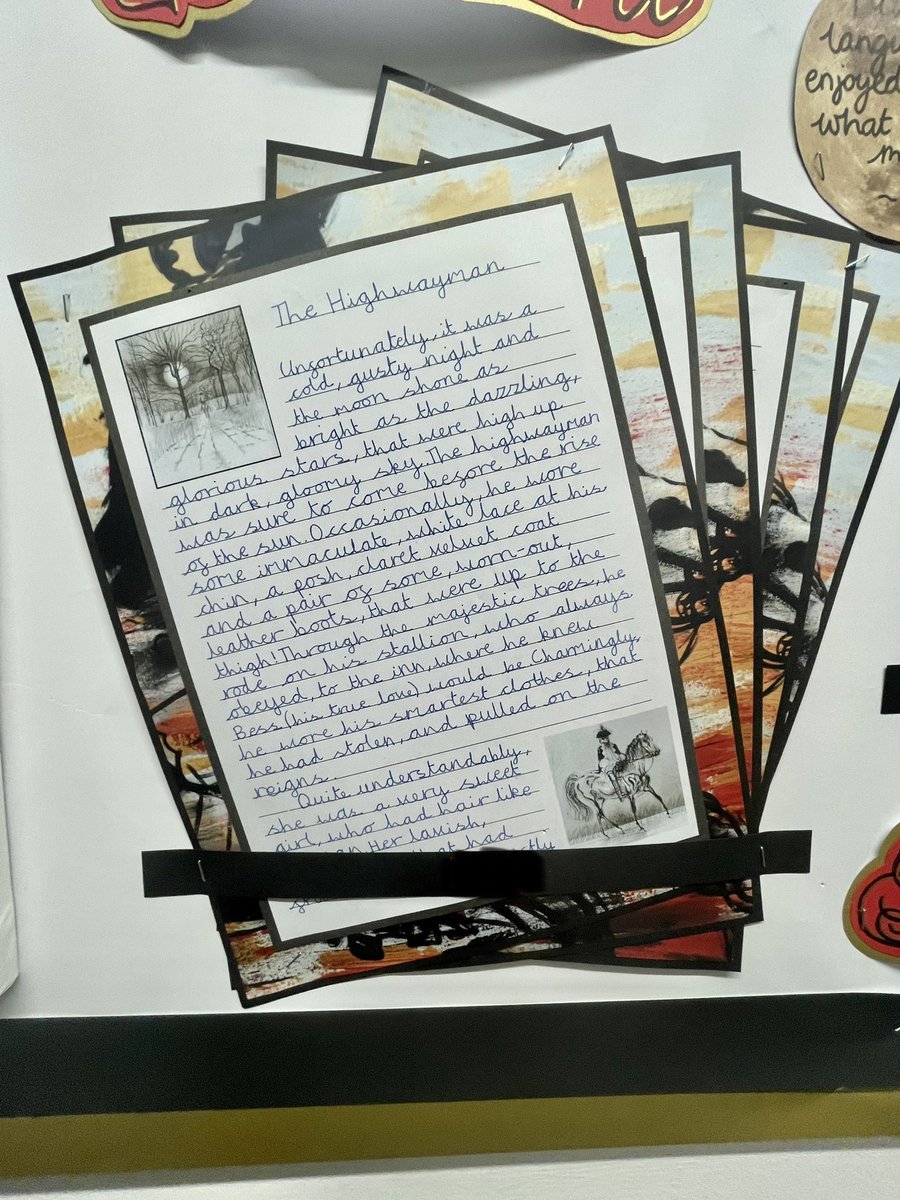 langu
enjoyed
what
m
~
The Highwayman
Unfortunately, it was a
cold, gusty night and
the moon shone as
bright as the dazzling,
glorious stars, that were high up
in dark, gloomy sky. The highwayman
was sure to come before the rise
of the sun. Occasionally, he wore
some immaculate, white lace at his
chin, a posh, claret velvet coat
and a pair of some, worn-out,
leather boots, that were up to the
thigh! Through the majestic trees, he
rode on his stallion, who always
obeyed, to the inn, where he knew
Bess, (his true love) would be. Charmingly,
he wore his smartest clothes, that
he had stolen, and pulled on the
reigns.
Quite understandably,
she was a very sweet
girl, who had hair like
Her lavish,
had